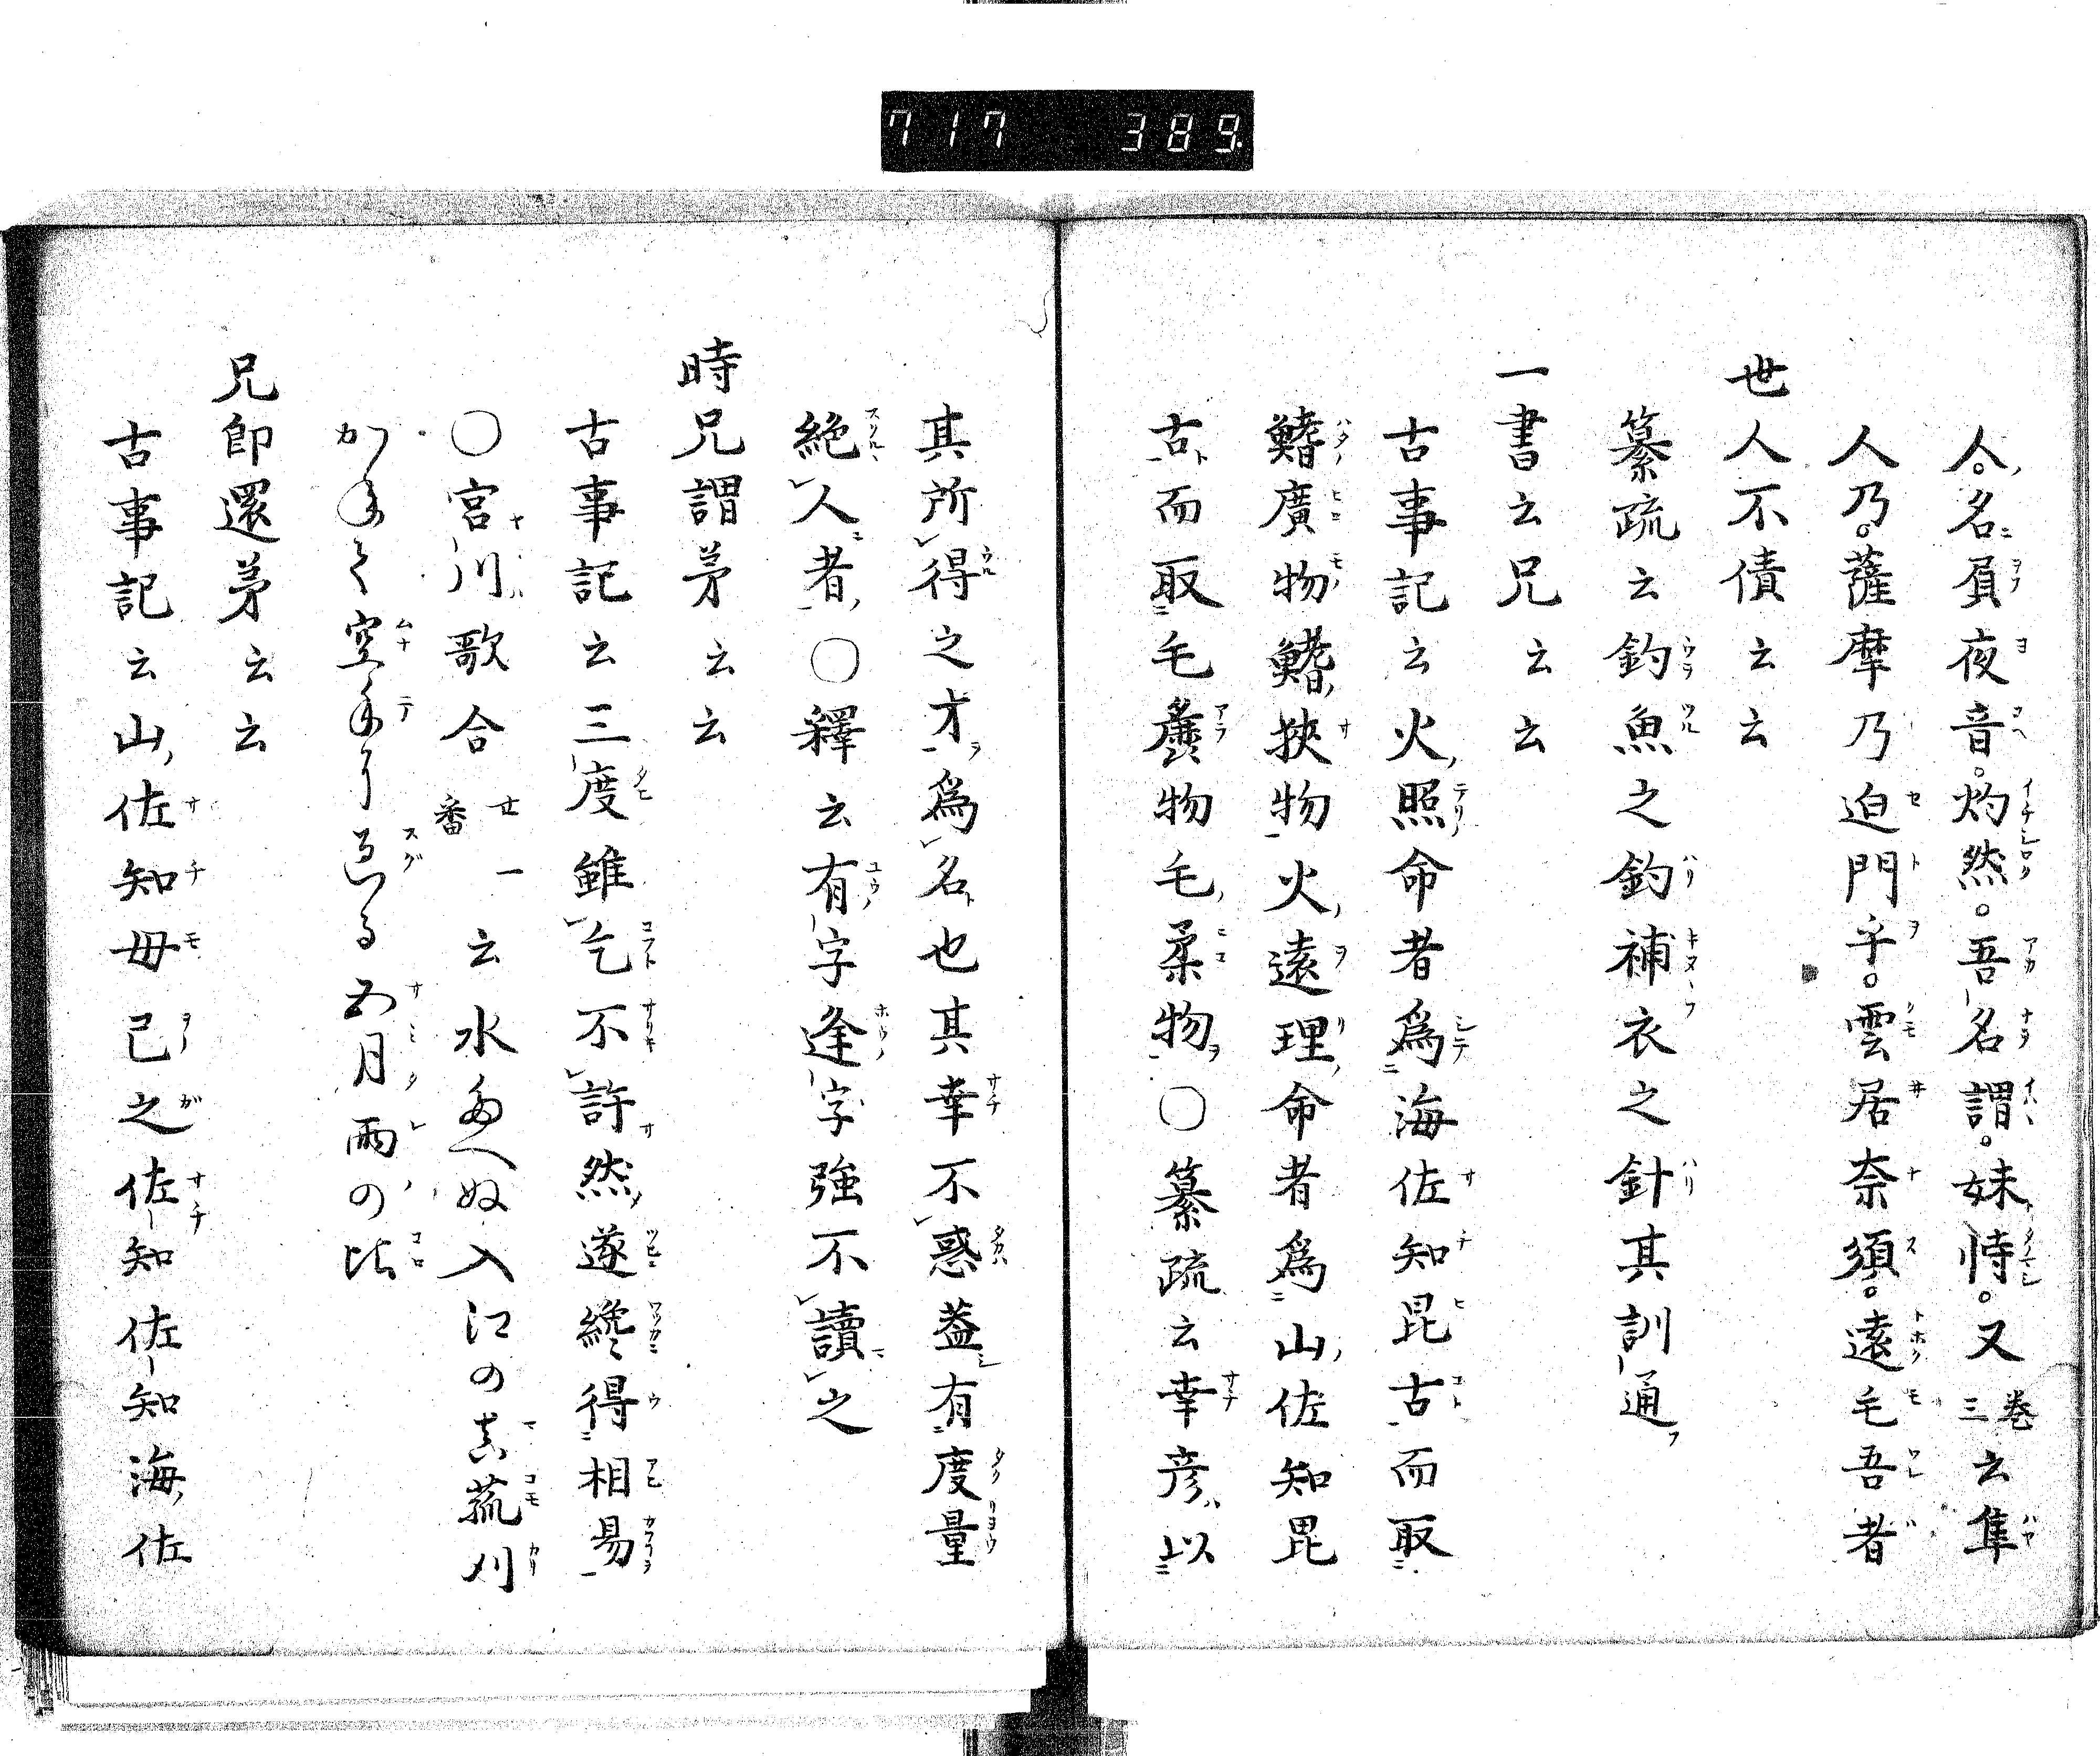 717 389
人名負夜音灼然吾名謂妹恃又三巻云隼
人乃薩摩乃迫門乎雲居奈須遠毛吾者
世人不債云云
纂疏云釣魚之釣補衣之針其訓通
一書云兄云云
古事記云火照命者為海佐知毘古而取
鰭廣物鰭狭物火遠理命者為山佐知毘
古而取毛麁物毛柔物〇纂疏云幸彦以
其所得之才為名也其幸不惑蓋有度量
絶人者〇釋云有字逢字強不讀之
時兄謂弟云云
古事記云三度雖乞不許然遂纔得相易
〇宮川歌合廿一番云水たへぬ入江の真菰刈
かねて空手に過る五月雨の比
兄即還弟云云
古事記云山佐知母己之佐知佐知海佐